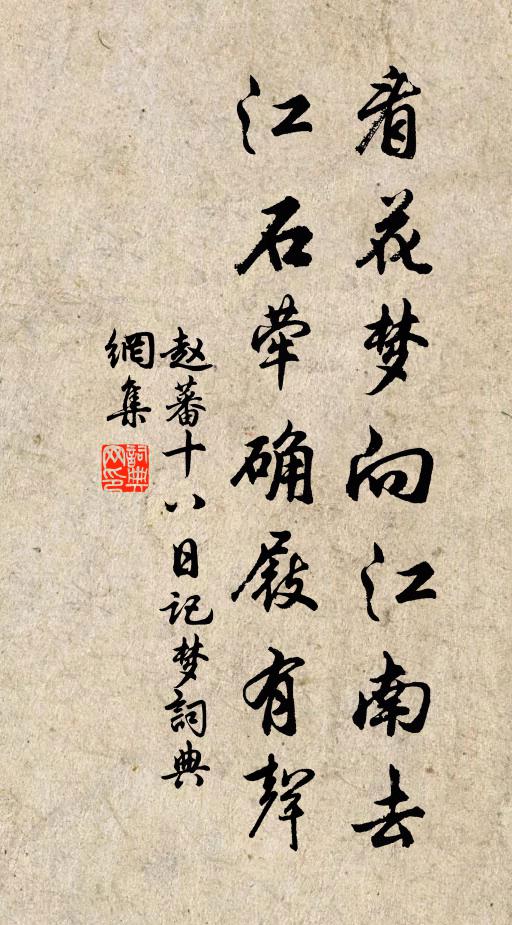 看花梦向江南去
江石荦确屐有聲
赵蕃十八日记梦詞典
網集
詞典网印